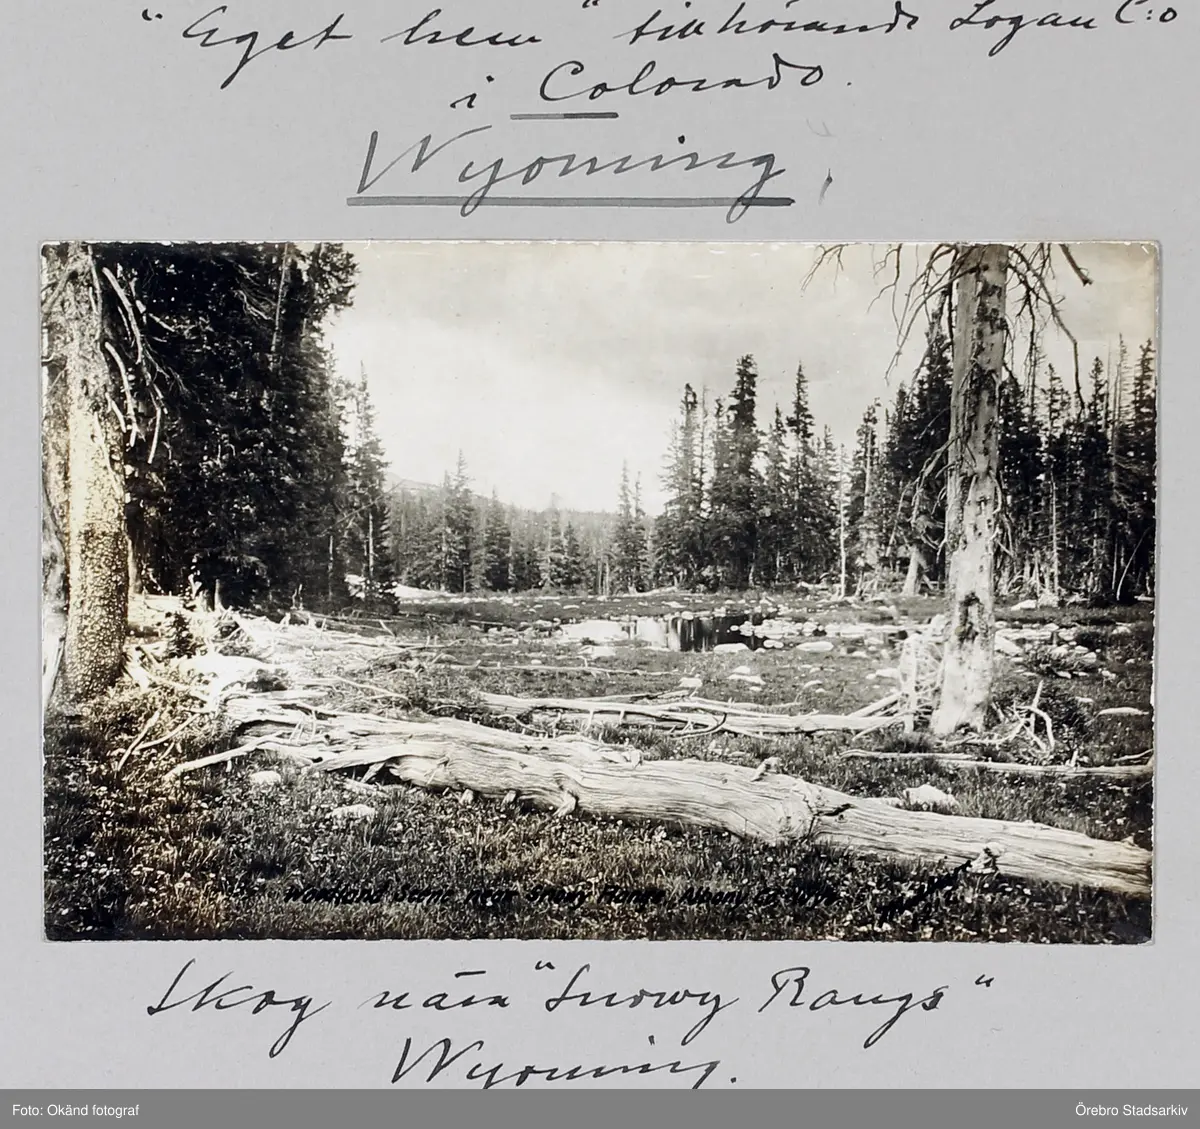 "Eget hem" tillhörande Logan C:o
i Colorado.
Wyoming,
Woodland Scene near Snowy Range, Albany Co. Wyo.
Skog nära "Snowy Range"
Wyoming.
Foto: Okänd fotograf
Örebro Stadsarkiv